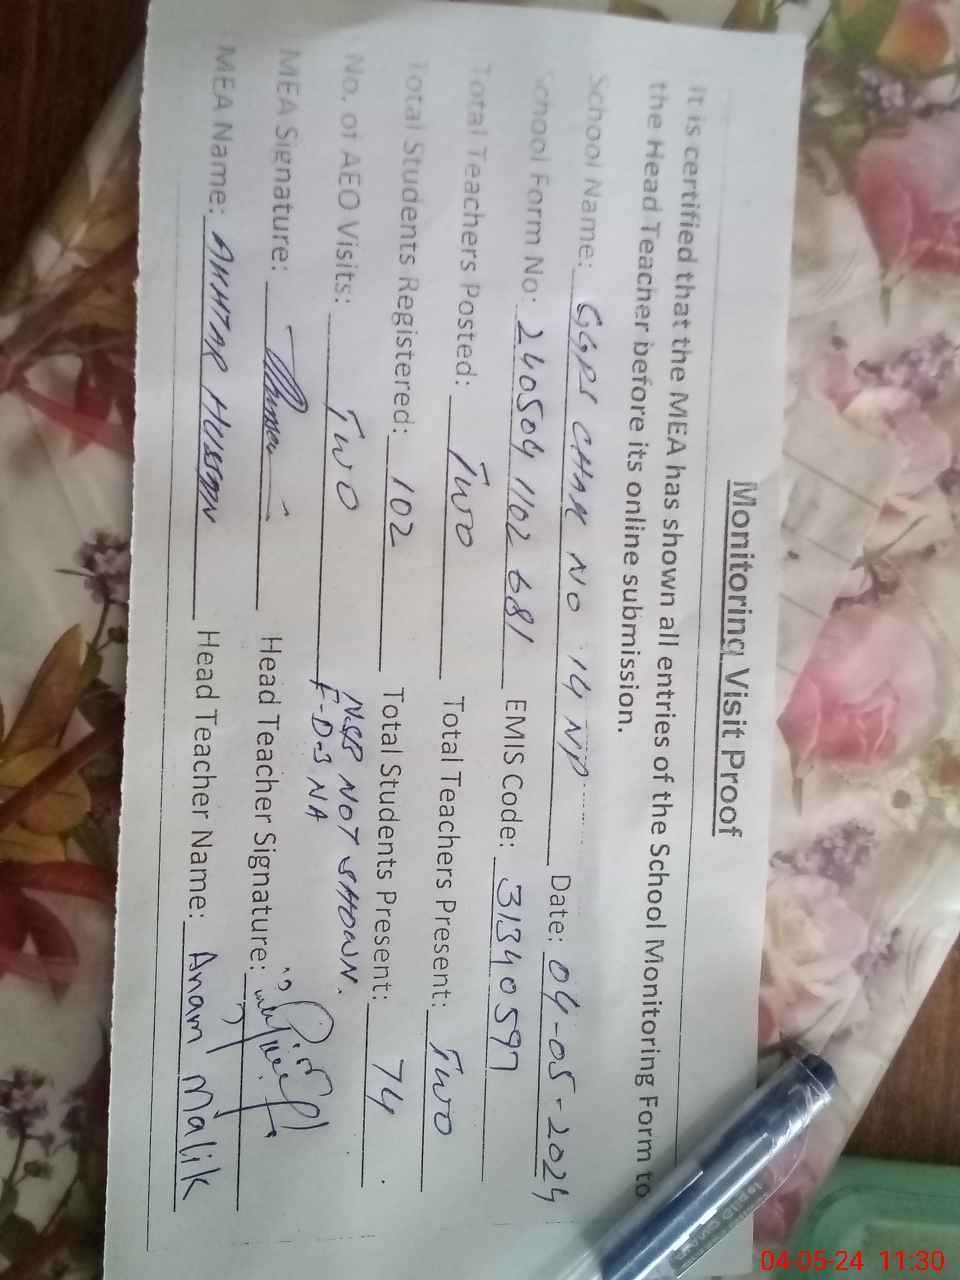 Monitoring Visit Proof
It is certified that the MEA has shown all entries of the School Monitoring Form to
the Head Teacher before its online submission.
School Name: GGPS CHAK NO 14 NP Date: 04-05-2024
School Form No: 240504 1102 681 EMIS Code: 31340597
Total Teachers Posted: Two Total Teachers Present: Two
Total Students Registered: 102 Total Students Present: 74
No. of AEO Visits: TWO NSB NOT SHOWN.
F-D-S NA
MEA Signature: Head Teacher Signature:
MEA Name: AKHTAR HUSSAIN Head Teacher Name: Anam Malik
04-05-24 11:30